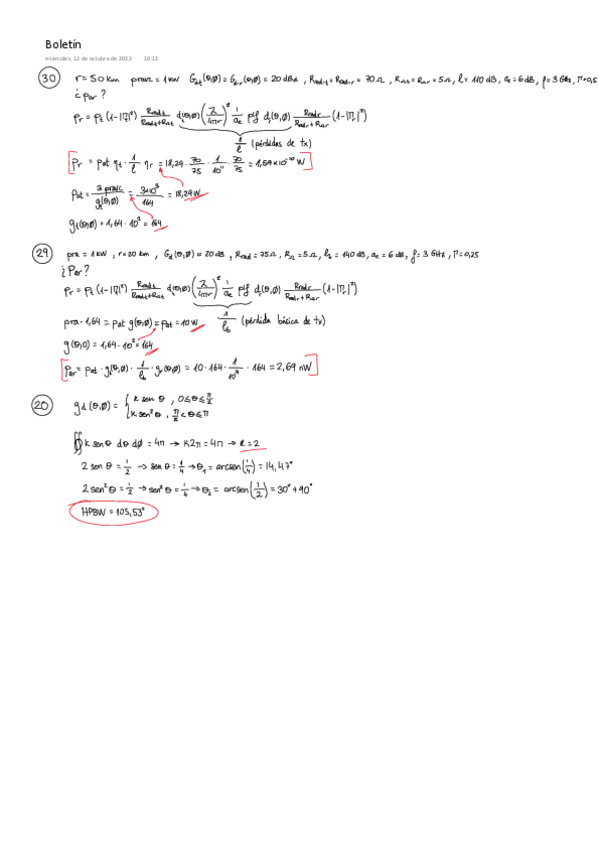 Boletín
miércoles, 12 de octubre de 2022 10:12
30 r = 50 km prarc = 1 kW Gdt (θ,ø) = Gdr (θ,ø) = 20 dBd , Rrad-t = Rrad-r = 70 Ω , RΩt = RΩr = 5 Ω, l = 110 dB, ae = 6 dB, f = 3 GHz, Γ = 0,5
¿ Par ?
Pr = Pt (1-|Γt|²) Rrad t / Rrad t + RΩt dt(θ,ø) (λ/4πr)² 1/ae plf dr(θ,ø) Rrad r / Rrad r + RΩr (1-|Γr|²)
1/l (pérdidas de tx)
Pr = Pat ηt · 1/l ηr = 18,29 · 70/75 · 1/10¹¹ · 70/75 = 1,59×10⁻¹⁰ W
Pat = 3 prarc / gt(θ,ø) = 3·10³ / 164 = 18,29 W
gt(θ,ø) = 1,64 · 10² = 164
29 pra = 1 kW , r = 20 km , Gd (θ,ø) = 20 dB , Rrad = 75 Ω , RΩ = 5 Ω, lb = 140 dB, ae = 6 dB, f = 3 GHz , Γ = 0,25
¿ Par ?
Pr = Pt (1-|Γt|²) Rrad t / Rrad t + RΩt dt(θ,ø) (λ/4πr)² 1/ae plf dr(θ,ø) Rrad r / Rrad r + RΩr (1-|Γr|²)
1/lb (pérdida básica de tx)
pra · 1,64 = pat g(θ,ø) = pat = 10 W
g(θ,ø) = 1,64 · 10² = 164
Par = Pat · g(θ,ø) · 1/lb · gr(θ,ø) = 10 · 164 · 1/10¹⁴ · 164 = 2,69 nW
20 gd (θ,ø) = { k sen θ , 0 ≤ θ ≤ π/2
k sen² θ , π/2 < θ ≤ π
∯ k sen θ dθ dø = 4π → k 2π = 4π → k = 2
2 sen θ = 1/2 → sen θ = 1/4 → θ₁ = arcsen(1/4) = 14,47°
2 sen² θ = 1/2 → sen² θ = 1/4 → θ₂ = arcsen(1/2) = 30° + 90°
HPBW = 105,53°